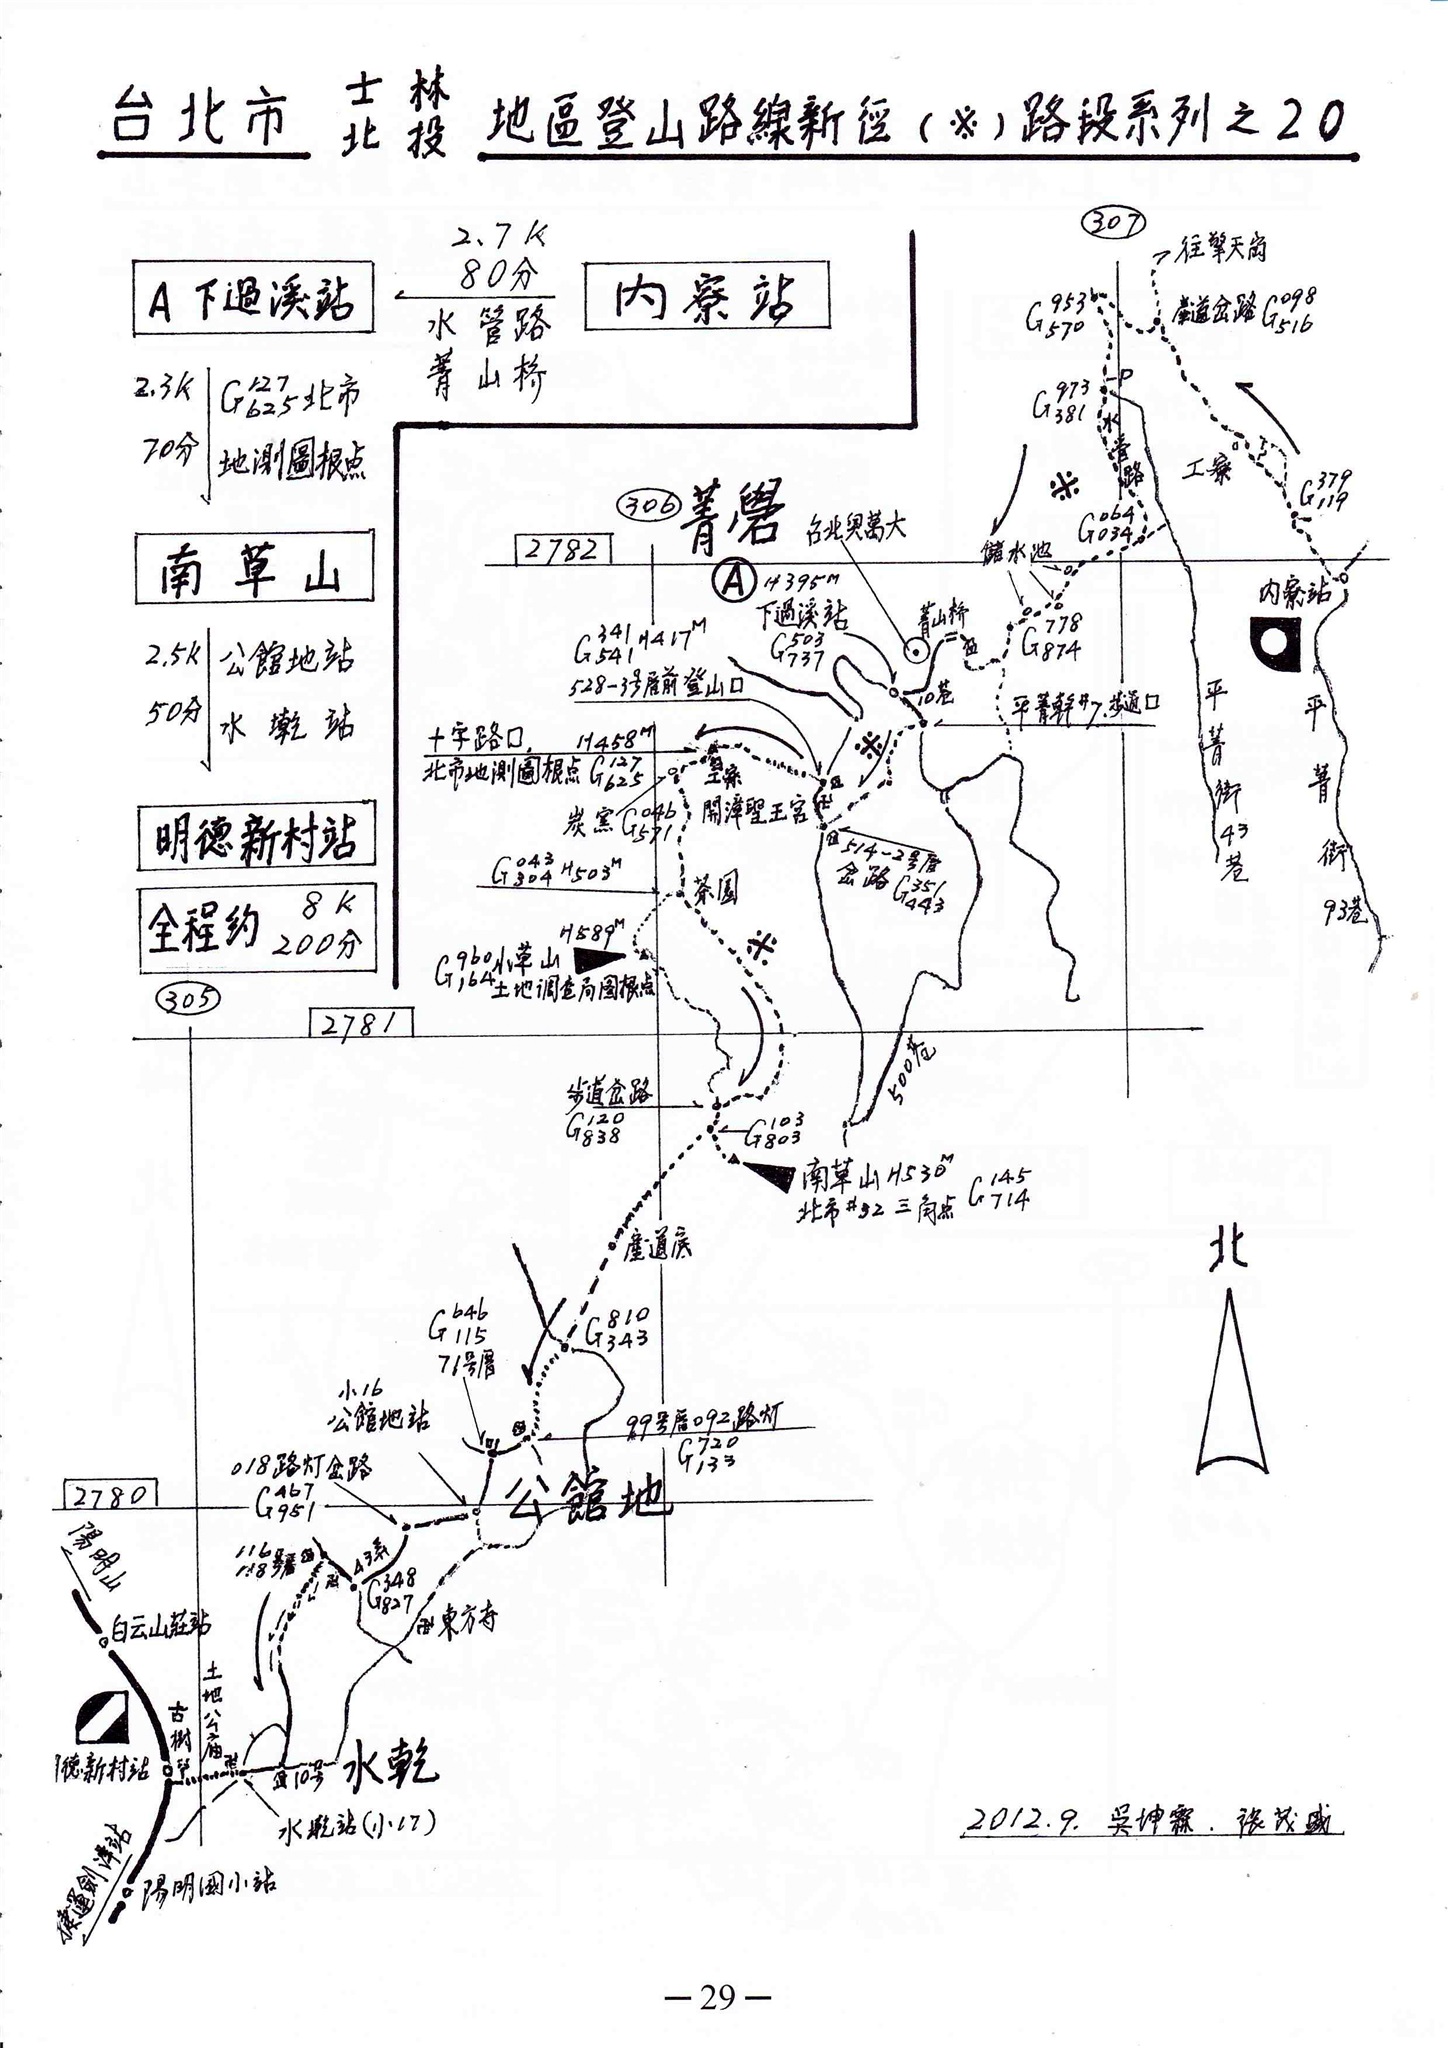 台北市 士林 北投 地區登山路線新徑(※)路段系列之20
內寮站
2.7K
80分
水管路
菁山桥
A 下過溪站
2.3K
70分
G127 625 北市
地測圖根点
南草山
2.5K
50分
公館地站
水乾站
明德新村站
全程約 8K
200分
307
往擎天崗
G953 570
產道岔路 G098 516
G973 381
P
水管路
※
工寮
G379 119
G064 034
儲水池
內寮站
306
菁礐
2782
台北奧萬大
A
H395M
下過溪站
G503 737
菁山桥
G778 874
G341 541 H417M
528-3号厝前登山口
10巷
平菁幹#7.步道口
平菁街43巷
平菁街93巷
十字路口. H458M
北市地測圖根点 G127 625
工寮
炭窯 G046 571
開漳聖王宮
※
514-2号厝
岔路 G351 443
G043 304 H503M
茶園
※
H589M
G960 164 小草山
土地調查局圖根点
305
2781
500巷
步道岔路
G120 838
G103 803
南草山 H530M G145 714
北市#32三角点
產道底
北
G646 115
71号厝
G810 343
小16
公館地站
99号厝092路灯
G720 133
018路灯岔路
G467 951
公館地
2780
陽明山
116
118号厝
G348 827
白云山莊站
卍東方寺
土地公庙
古樹
德新村站
10号
水乾
水乾站(小17)
捷運劍潭站
陽明國小站
2012.9. 吳坤霖. 張茂盛
—29—